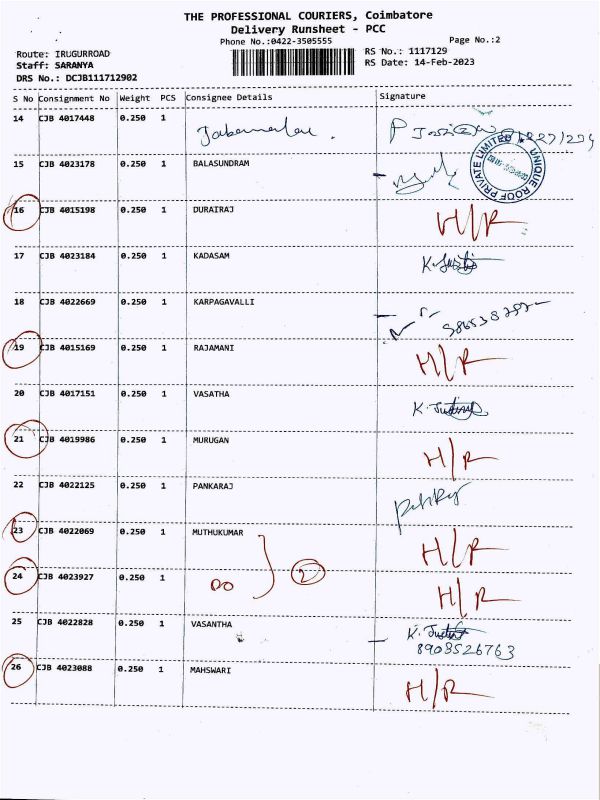 THE PROFESSIONAL COURIERS, Coimbatore
Delivery Runsheet - PCC
Phone No.:0422-3505555 Page No.:2
Route: IRUGURROAD RS No.: 1117129
Staff: SARANYA RS Date: 14-Feb-2023
DRS No.: DCJB111712902
S No Consignment No Weight PCS Consignee Details Signature
14 CJB 4017448 0.250 1
15 CJB 4023178 0.250 1 BALASUNDRAM
UNIQUE ROOF PRIVATE LIMITED
16 CJB 4015198 0.250 1 DURAIRAJ H/R
17 CJB 4023184 0.250 1 KADASAM
18 CJB 4022669 0.250 1 KARPAGAVALLI
19 CJB 4015169 0.250 1 RAJAMANI H/R
20 CJB 4017151 0.250 1 VASATHA K. Justin
21 CJB 4019986 0.250 1 MURUGAN H/R
22 CJB 4022125 0.250 1 PANKARAJ
23 CJB 4022069 0.250 1 MUTHUKUMAR H/R
24 CJB 4023927 0.250 1 DO 2 H/R
25 CJB 4022828 0.250 1 VASANTHA K. Justin
8908526763
26 CJB 4023088 0.250 1 MAHSWARI H/R